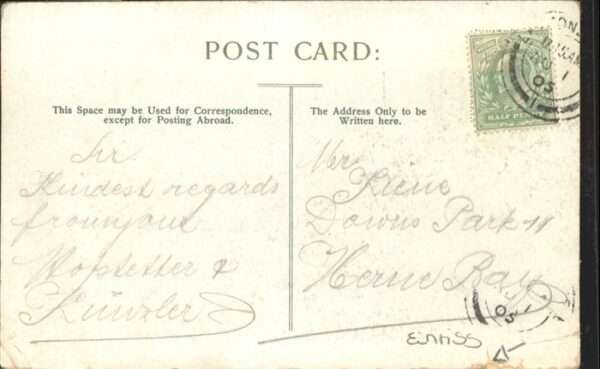 POST CARD:
This Space may be Used for Correspondence,
except for Posting Abroad.
The Address Only to be
Written here.
HALF PE
05
Sir
Kindest regards
from your
Hostetter &
Künzler
Mr
Downs Park
Herne Bay
05